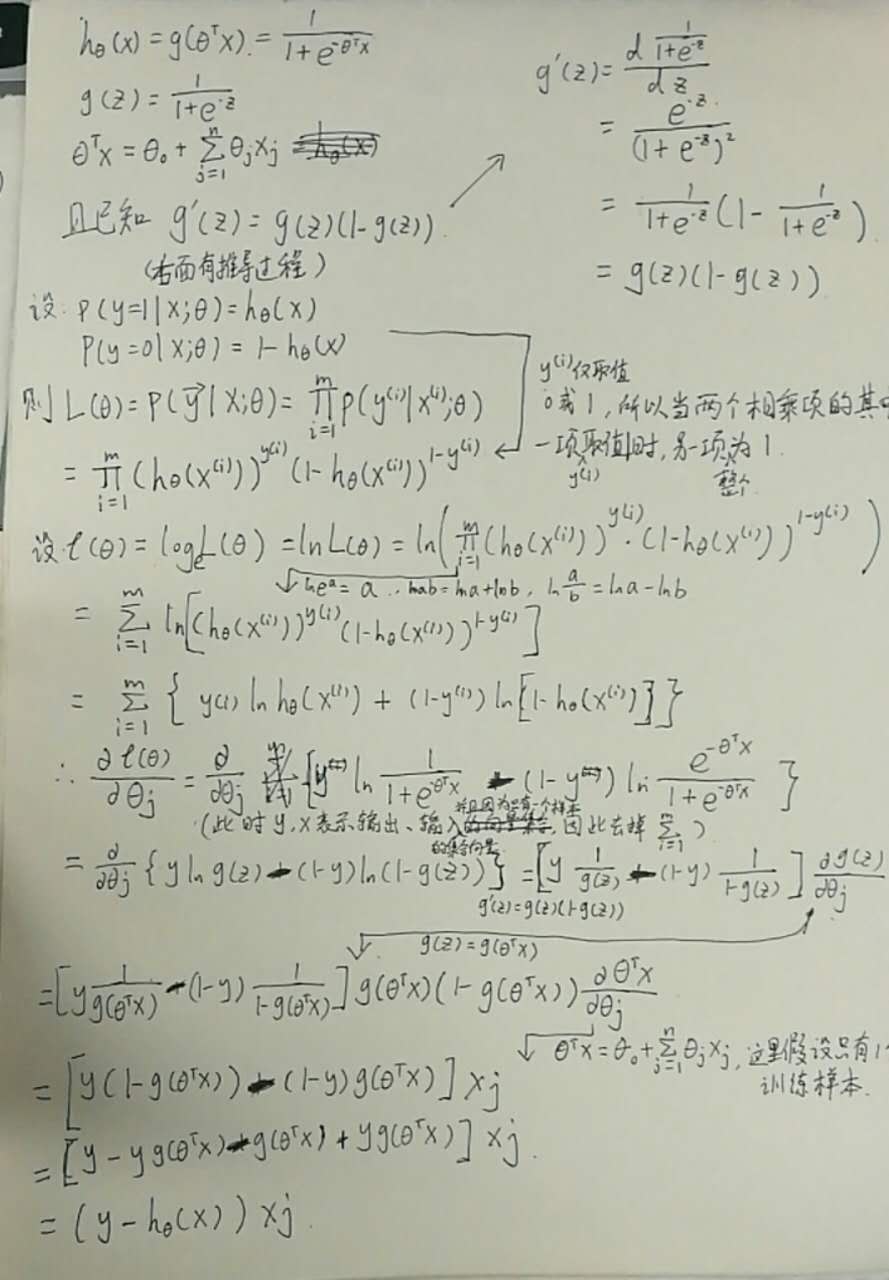 hθ(x) = g(θᵀx) = 1/(1+e^(-θᵀx))
g(z) = 1/(1+e^(-z))
θᵀx = θ₀ + Σ_{j=1}^{n} θⱼxⱼ
且已知 g'(z) = g(z)(1-g(z))
(右面有推导过程)
g'(z) = d 1/(1+e^(-z)) / dz
= e^(-z)/(1+e^(-z))²
= 1/(1+e^(-z)) (1 - 1/(1+e^(-z)))
= g(z)(1-g(z))
设: P(y=1|x;θ) = hθ(x)
P(y=0|x;θ) = 1-hθ(x)
则 L(θ) = P(y⃗|X;θ) = ∏_{i=1}^{m} P(y⁽ⁱ⁾|x⁽ⁱ⁾;θ)
= ∏_{i=1}^{m} (hθ(x⁽ⁱ⁾))^(y⁽ⁱ⁾) (1-hθ(x⁽ⁱ⁾))^(1-y⁽ⁱ⁾)
y⁽ⁱ⁾仅取值
0或1, 所以当两个相乘项的其中
一项取值1时, 另一项为1.
y⁽ⁱ⁾ 整个
设 ℓ(θ) = logₑL(θ) = lnL(θ) = ln(∏_{i=1}^{m} (hθ(x⁽ⁱ⁾))^(y⁽ⁱ⁾)·(1-hθ(x⁽ⁱ⁾))^(1-y⁽ⁱ⁾))
lneᵃ = a, lnab = lna+lnb, ln a/b = lna-lnb
= Σ_{i=1}^{m} ln[(hθ(x⁽ⁱ⁾))^(y⁽ⁱ⁾) (1-hθ(x⁽ⁱ⁾))^(1-y⁽ⁱ⁾)]
= Σ_{i=1}^{m} { y⁽ⁱ⁾ ln hθ(x⁽ⁱ⁾) + (1-y⁽ⁱ⁾) ln[1-hθ(x⁽ⁱ⁾)] }
∴ ∂ℓ(θ)/∂θⱼ = ∂/∂θⱼ {y ln 1/(1+e^(-θᵀx)) + (1-y) ln e^(-θᵀx)/(1+e^(-θᵀx)) }
并且因为只有一个样本
(此时 y, x 表示输出、输入, 因此去掉 Σ_{i=1}^{m})
的集合向量
= ∂/∂θⱼ {y ln g(z) + (1-y)ln(1-g(z))} = [y 1/g(z) - (1-y) 1/(1-g(z))] ∂g(z)/∂θⱼ
g'(z)=g(z)(1-g(z))
g(z) = g(θᵀx)
= [y 1/g(θᵀx) - (1-y) 1/(1-g(θᵀx))] g(θᵀx)(1-g(θᵀx)) ∂θᵀx/∂θⱼ
θᵀx = θ₀+Σ_{j=1}^{n} θⱼxⱼ, 这里假设只有1个
训练样本.
= [y(1-g(θᵀx)) - (1-y)g(θᵀx)] xⱼ
= [y-yg(θᵀx)-g(θᵀx)+yg(θᵀx)] xⱼ.
= (y-hθ(x)) xⱼ.